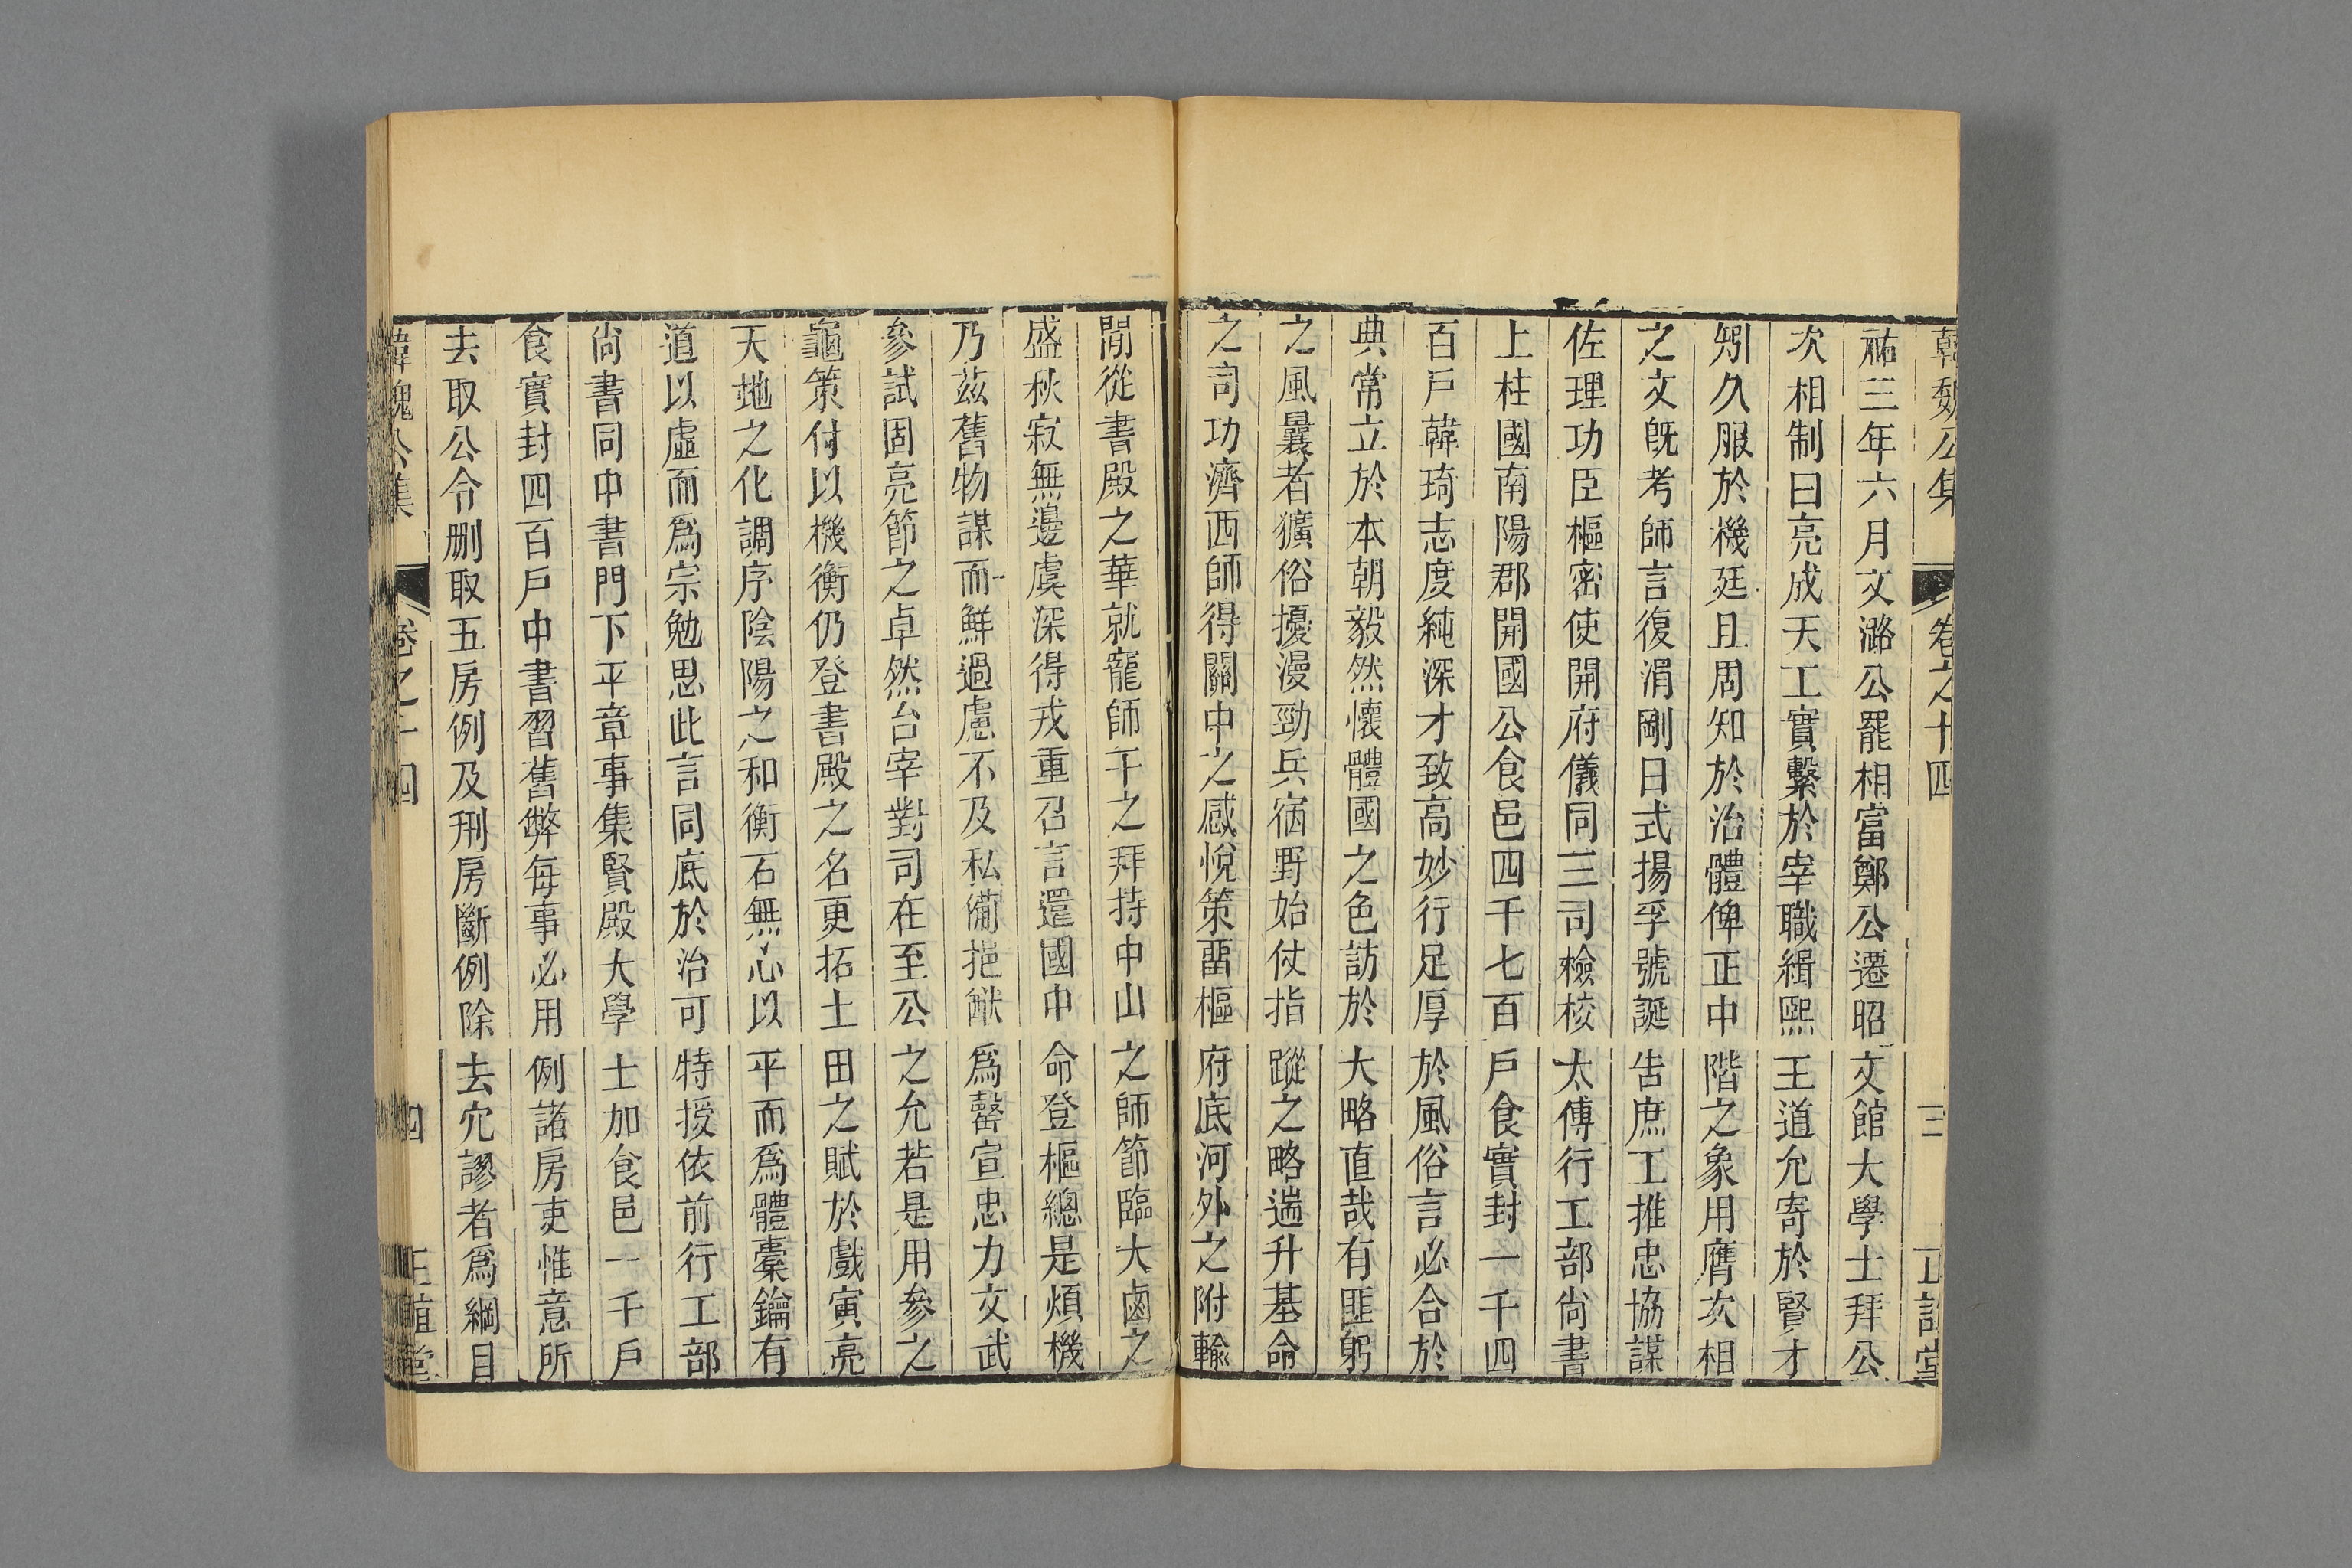 韓魏公集 卷之十四 三 正誼堂
祐三年六月文潞公罷相富鄭公遷昭文館大學士拜公
次相制曰亮成天工實繫於宰職緝熙王道允寄於賢才
矧久服於機廷且周知於治體俾正中階之象用膺次相
之文旣考師言復涓剛日式揚孚號誕告庶工推忠協謀
佐理功臣樞密使開府儀同三司檢校太傅行工部尙書
上柱國南陽郡開國公食邑四千七百戶食實封一千四
百戶韓琦志度純深才致高妙行足厚於風俗言必合於
典常立於本朝毅然懷體國之色訪於大略直哉有匪躬
之風曩者獷俗擾漫勁兵宿野始仗指蹤之略遄升基命
之司功濟西師得關中之感悅策畱樞府底河外之附輸
閒從書殿之華就寵師干之拜持中山之師節臨大鹵之
盛秋寂無邊虞深得戎重召言還國中命登樞總是煩機
乃茲舊物謀而鮮過慮不及私備挹猷爲罄宣忠力文武
參試固亮節之卓然台宰對司在至公之允若是用參之
龜策付以機衡仍登書殿之名更拓土田之賦於戲寅亮
天地之化調序陰陽之和衡石無心以平而爲體橐鑰有
道以虛而爲宗勉思此言同底於治可特授依前行工部
尙書同中書門下平章事集賢殿大學士加食邑一千戶
食實封四百戶中書習舊弊每事必用例諸房吏惟意所
去取公令刪取五房例及刑房斷例除去宂謬者爲綱目
韓魏公集 卷之十四 四 正誼堂